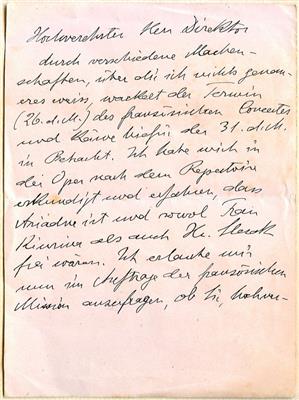 Hochverehrter Herr Direktor
durch verschiedene Machen-
schaften, über die ich nichts genau-
eres weiss, wackelt der Termin
(26. d. M.) des französischen Concertes
und käme hiefür der 31. d. M.
in Betracht. Ich habe mich in
der Oper nach dem Repertoire
erkundigt und erfahren, dass
Ariadne ist und sowol Frau
Kiurina als auch Hr.
frei wären. Ich erlaube mir
nun im Auftrage der französischen
Mission anzufragen, ob Sie, hochver-